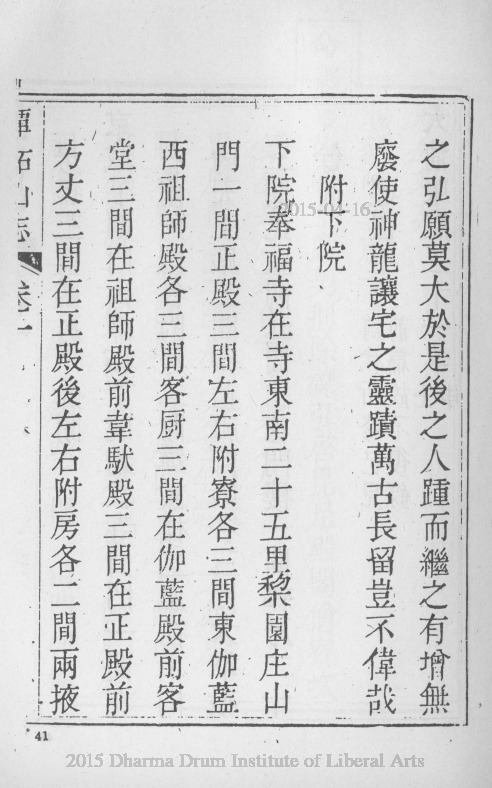 之弘願莫大於是後之人踵而繼之有增無
廢使神龍讓宅之靈蹟萬古長留豈不偉哉
附下院
下院奉福寺在寺東南二十五里梨園庄山
門一間正殿三間左右附寮各三間東伽藍
西祖師殿各三間客厨三間在伽藍殿前客
堂三間在祖師殿前韋馱殿三間在正殿前
方丈三間在正殿後左右附房各二間兩掖
潭柘山志 卷一
41
2015-04-16
2015 Dharma Drum Institute of Liberal Arts